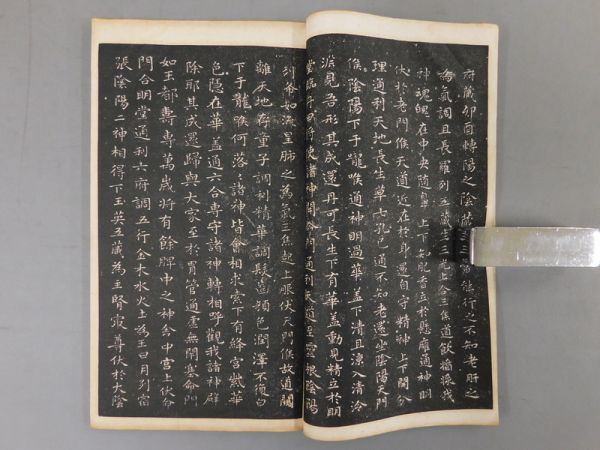 府藏卯酉轉陽之陰藏 能行之不知老肝之
為氣調且長羅列五藏主三光上合三焦道飲 我
神魂魄在中央隨鼻上下知肥香立於懸 通神明
伏於老門候天道近在於身還自守精神上下開分
理通利天地長生草七孔已通不知老還坐陰陽天門
候陰陽下于嚨喉通神明過華蓋下清且涼入清泠
淵見吾形其成還丹可長生下有華蓋動見精立於明
堂臨丹田將使諸神開命門通利天道至靈根陰陽
列布如流星肺之為氣三焦起上服伏天門候故道闚
離天地存童子調利精華調髮齒顏色潤澤不復白
下于嚨喉何落落諸神皆會相求索下有絳宮紫華
色隱在華蓋通六合專守諸神轉相呼觀我諸神辟
除耶其成還歸與大家至於胃管通虛無閉塞命門
如玉都壽專萬歲將有餘脾中之神舍中宮上伏命
門合明堂通利六府調五行金木水火土為王日月列宿
張陰陽二神相得下玉英五藏為主腎最尊伏於大陰